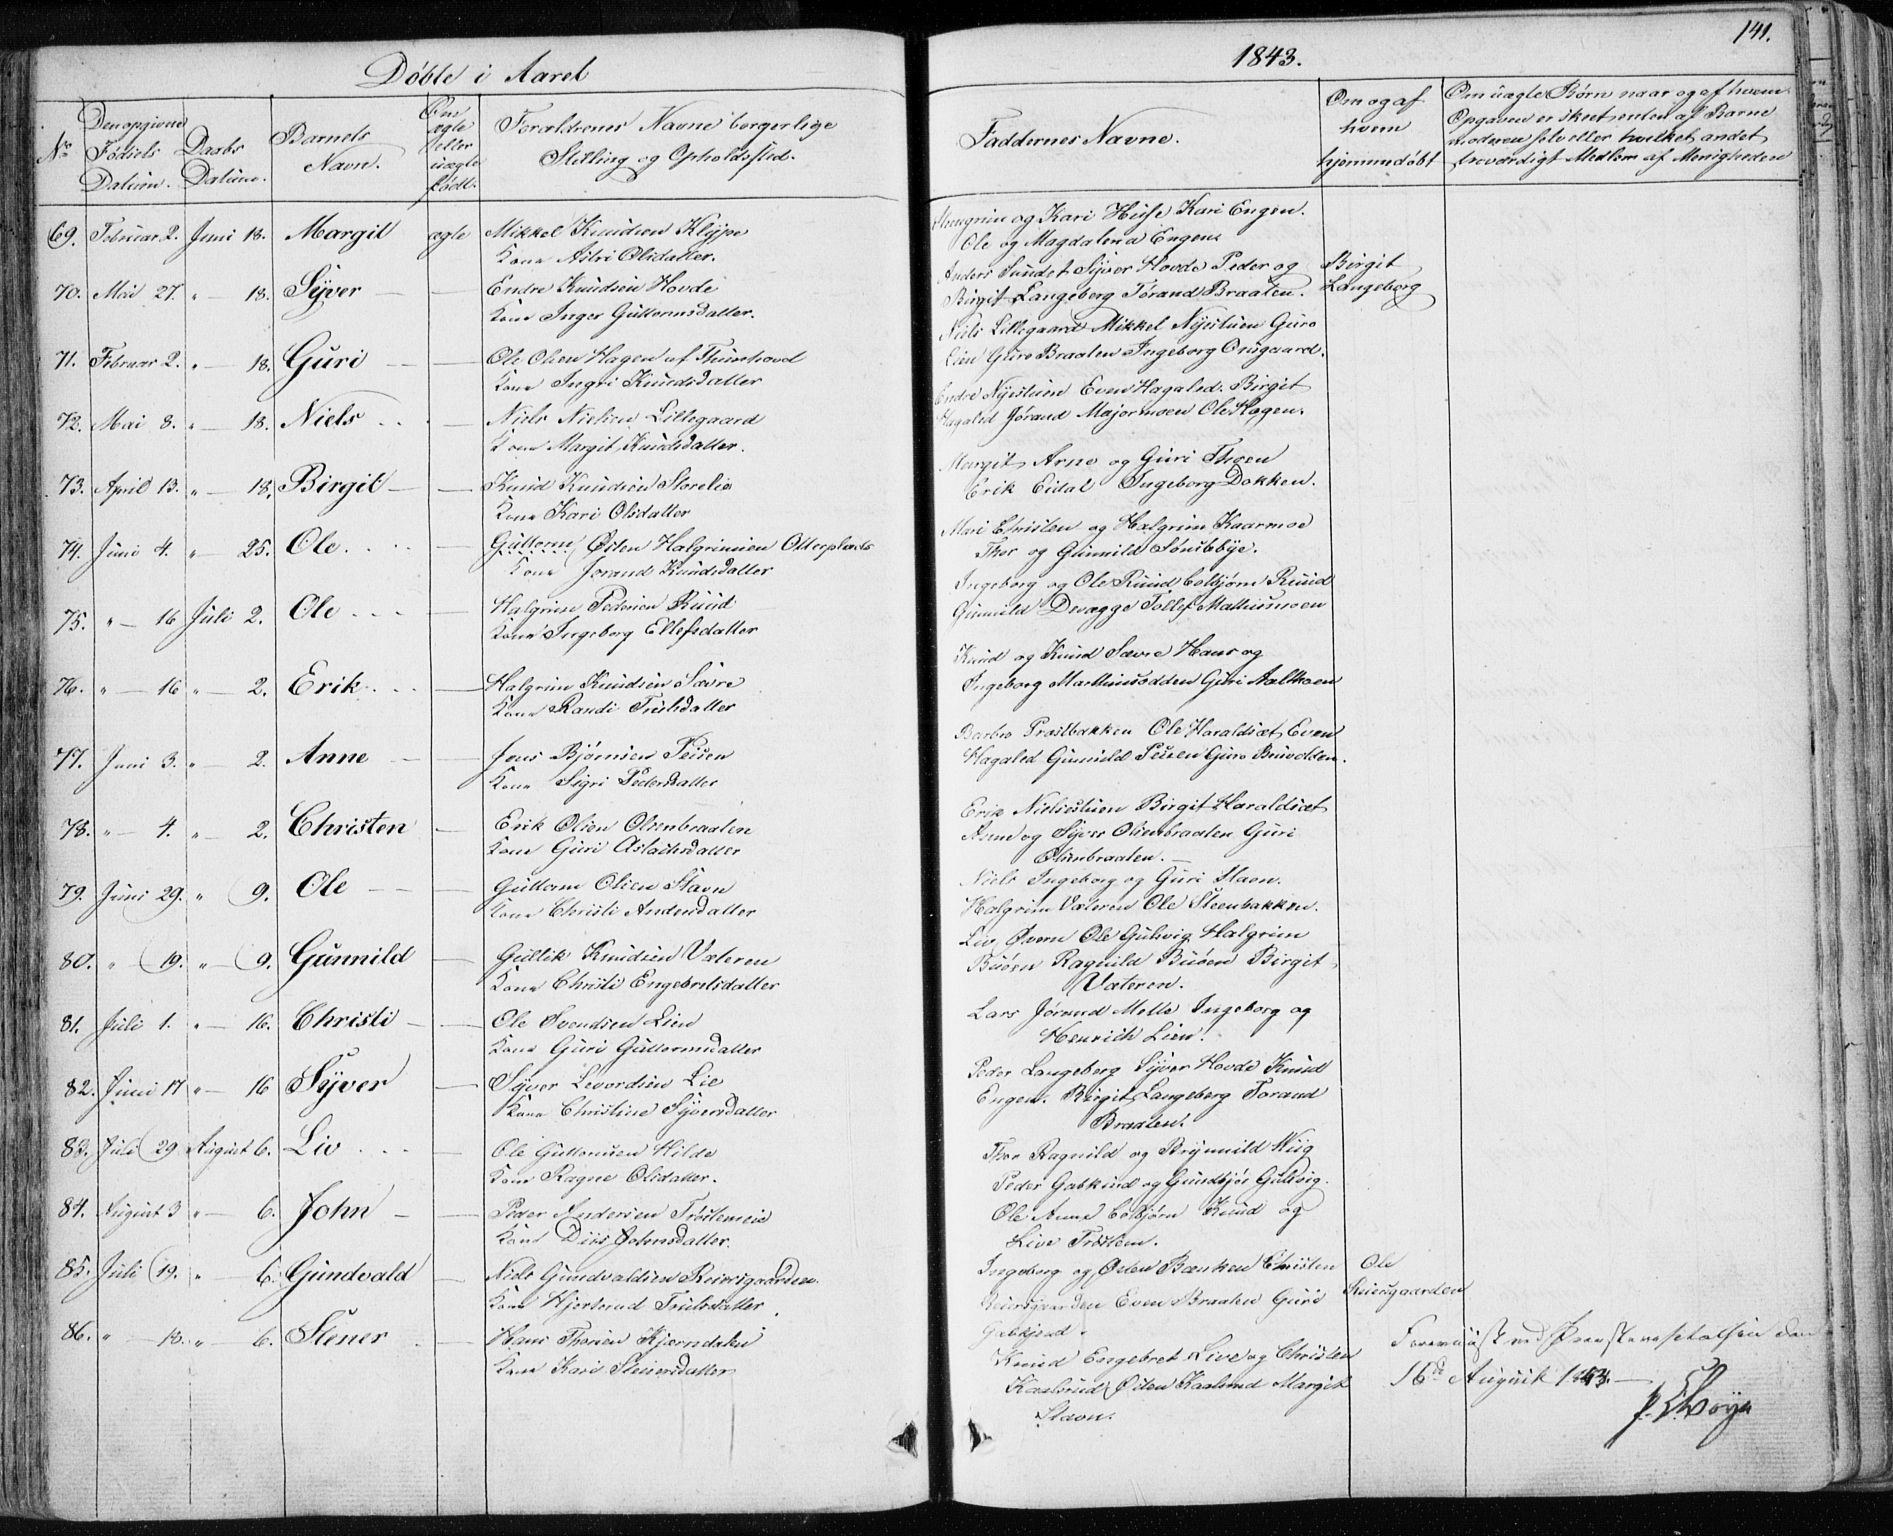 Døbte i Aaret
1843.
141.
No
Den opgivne Fødsels Datum.
Daabs Datum.
Barnets Navn.
Om ægte eller uægte født.
Forældrenes Navne borgerlige Stilling og Opholdssted.
Faddernes Navne.
Om og af hvem hjemmedøbt
Om uægte Børn naar og af hvem Opgaven er skeet enten af Barnemoderen selv eller hvilket andet troværdigt Medlem af Menigheden
69. Februar 2. Juni 18. Margit ægte Mikkel Knudsen Klype
Kone Astri Olsdatter.
og Kari Huse Kari Engen.
Ole og Magdalena Engene
70. Mai 27. " — 18. Syver — — Endre Knudsen Hovde
Kone Inger Guttormsdatter.
Anders Sundet Syver Hovde Peder og
Birgit Langeberg Torand Braaten.
Birgit
Langeberg
71. Februar 2. " — 18. Guri — — Ole Olsen Hagen af
Kone Ingri Knudsdatter
Niels Lillegaard Mikkel Nystuen Guro
Lien Guro Braaten Ingeborg
72. Mai 8. " — 18. Niels . . — Niels Nielsen Lillegaard
Kone Margit Knudsdatter.
Endre Nystuen Even Hagaled. Birgit
Hagaled Jørand Majormoen Ole Hagen.
73. April 13. " — 18. Birgit — — Knud Knudsen Storelie
Kone Kari Olsdatter
Margit Arne og Guri Thoen
Erik Eidal Ingeborg Dokken.
74. Juni 4. " — 25. Ole. . . . — Guttorm Østen Halgrimsen Olterplads
Kone Jorand Knudsdatter
Mari Christen og Halgrim Kaarmoe
Thor og Gunnild Sønstebye.
75. " — 16 Juli 2. Ole . . . — Halgrim Pedersen Ruud
Kone Ingeborg Ellefsdatter
Ingeborg og Ole Ruud Colbjørn Ruud
Gunnild Dvægge Tollef Mathiesmoen
76. " — 16 " — 2. Erik . . . — Halgrim Knudsen Sævre
Kone Randi Trulsdatter
Knud og Knud Sævre Hans og
Ingeborg Marthinsodden Guri
77. Juni 3. " — 2. Anne — — Jons Bjørnsen Pesen
Kone Sigri Pedersdatter
Barbro Prestbakken Ole Haraldset Even
Hagaled Gunnild Pesen Guro
78. " — 4. " — 2. Christen — Erik Olsen Olsenbraaten
Kone Guri Aslachsdatter
Erik Nielsestuen Birgit Haraldset
Anne og Syver Olsenbraaten Guri
Olsenbraaten. —
79. Juni 29. " 9. Ole — — — Guttorm Olsen Stavn
Kone Christi Andersdatter
Niels Ingeborg og Guri Stavn.
Halgrim Væteren Ole Steenbakken.
80. " — 19. " — 9. Gunnild — Gullik Knudsen Væteren
Kone Christi Engebretsdatter
Liv Øvern Ole Gulsvig Halgrim
Buøen Ragnild Buøen Birgit
Væteren.
81. Juli 1. " — 16. Christi — — Ole Svendsen Lien
Kone Guri Guttormsdatter
Lars Jørand Melle Ingeborg og
Henrich Lien.
82. Juni 17 " — 16 Syver — Syver Levordsen Lie
Kone Christine Syversdatter
Peder Langeberg Syver Hovde Knud
Engen. Birgit Langeberg Torand
Braaten.
83. Juli 29 August 6. Liv . . . — Ole Guttormsen Hilde
Kone Ragne Olsdatter.
Thor Ragnild og Brynnild Wiig
Peder Gabkind og Gundbjør Gulsvig.
84. August 3 " — 6. John — — Peder Andersen Trøstemeie
Kone Diis Johnsdatter.
Ole Anne Colbjørn Knud og
Live Trøstem.
85. Juli 19. " — 6. Gundvald — Niels Gundvaldsen Reiersgaarden
Kone Hjertrud Trulsdatter
Ingeborg og Østen Bænken Christen
Reiersgaarden Even Braaten Guri
Gabkjend.
Ole
Reiersgaarden
86. " — 13. " — 6. Stener . — Hans Thorsen Kjærndalen
Kone Kari Steinersdatter
Knud Engebret Live og Christen
Kaalsrud Østen Kaalsrud Margit
Stavn.
Foreviist ved
16de August 1843. —